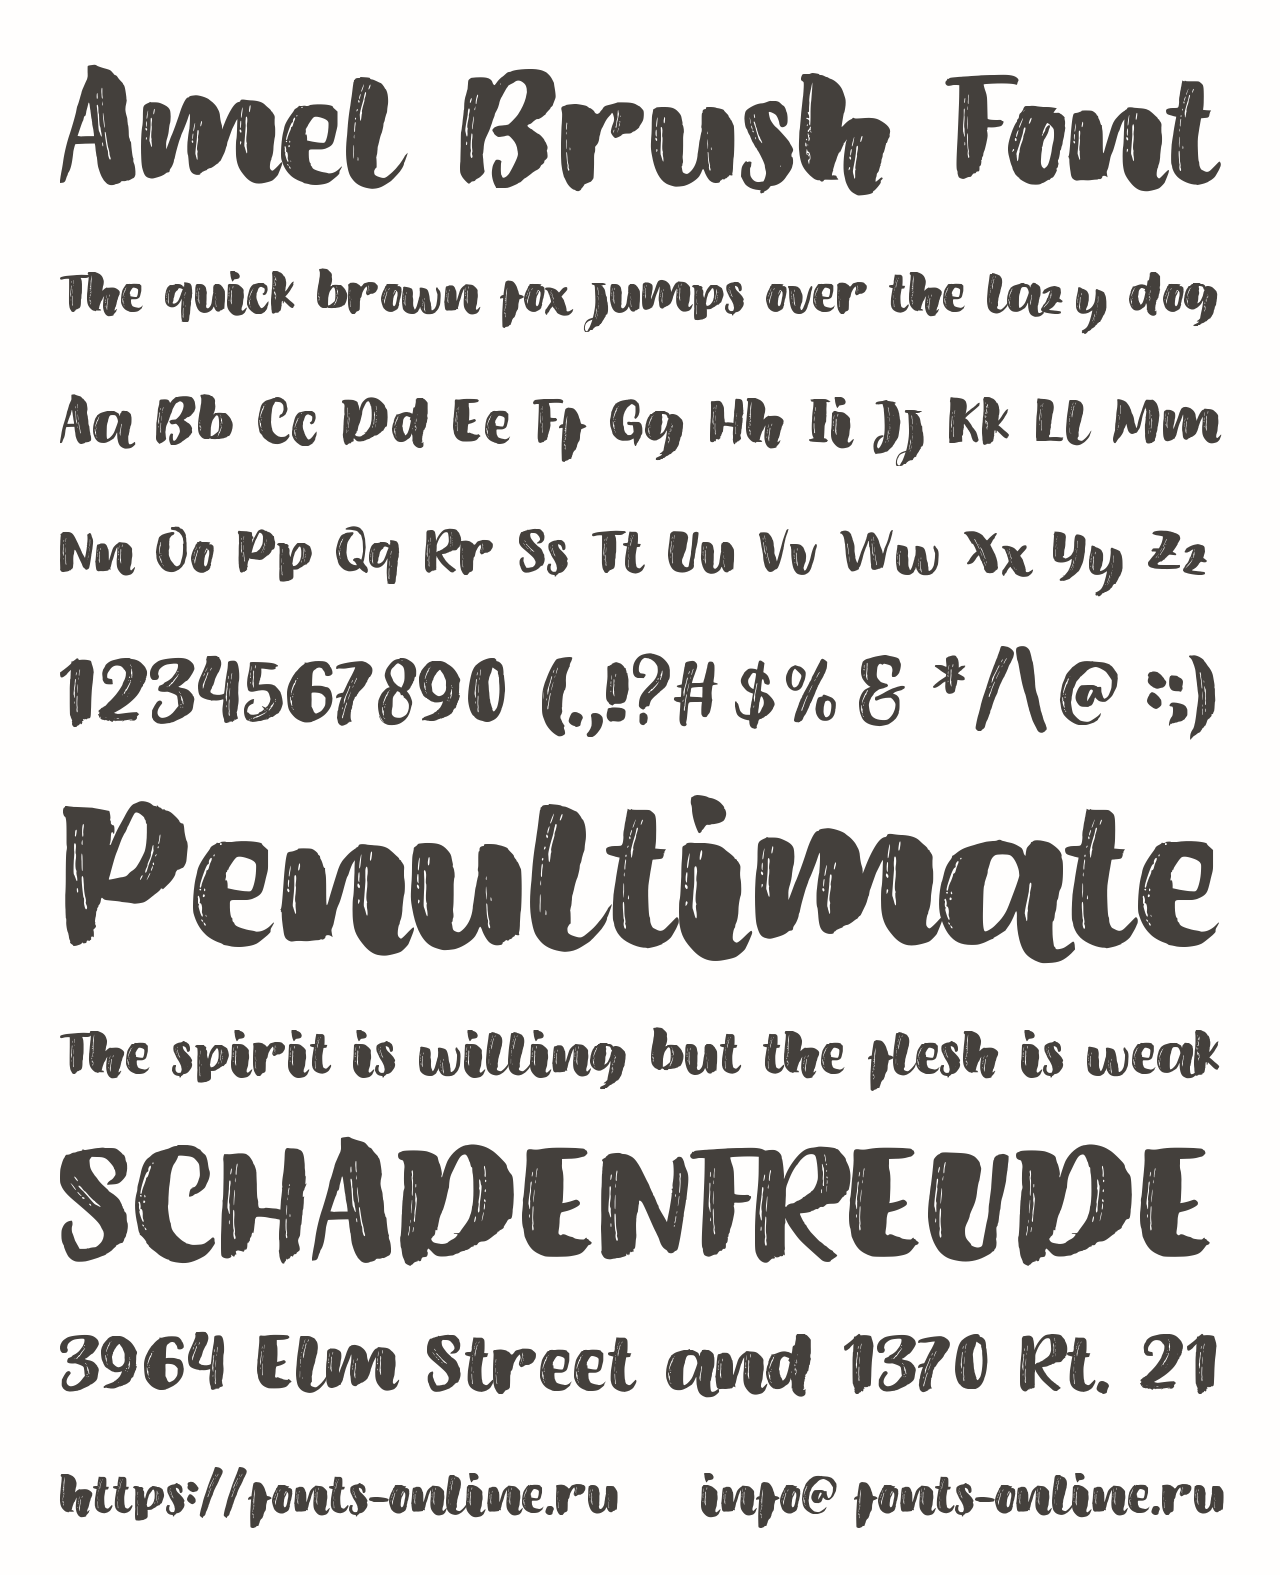 Amel Brush Font
The quick brown fox jumps over the lazy dog
Aa Bb Cc Dd Ee Ff Gg Hh Ii Jj Kk Ll Mm
Nn Oo Pp Qq Rr Ss Tt Uu Vv Ww Xx Yy Zz
1234567890 (.,!?# $% & */\@ :;)
Penultimate
The spirit is willing but the flesh is weak
SCHADENFREUDE
3964 Elm Street and 1370 Rt. 21
https://fonts-online.ru info@fonts-online.ru